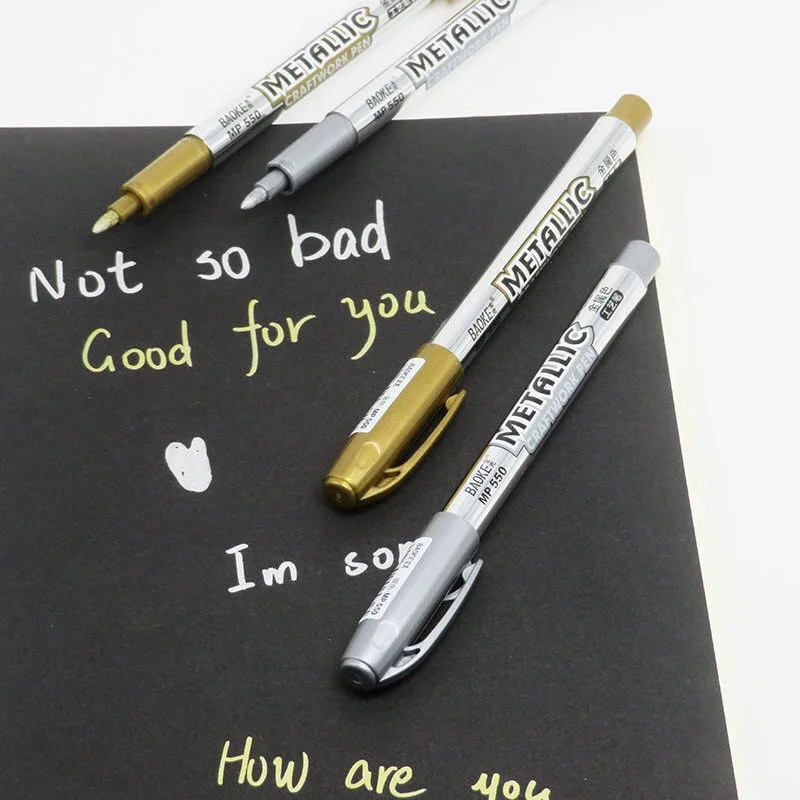 METALLIC
CRAFTWORK PEN
BAOKE
MP 550
METALLIC
CRAFTWORK PEN
BAOKE
MP 550
Not so bad
Good for you
金属色
METALLIC
BAOKE
MP 550
金属色
工艺笔
METALLIC
CRAFTWORK PEN
BAOKE
MP 550
Im
MP 550
How are you